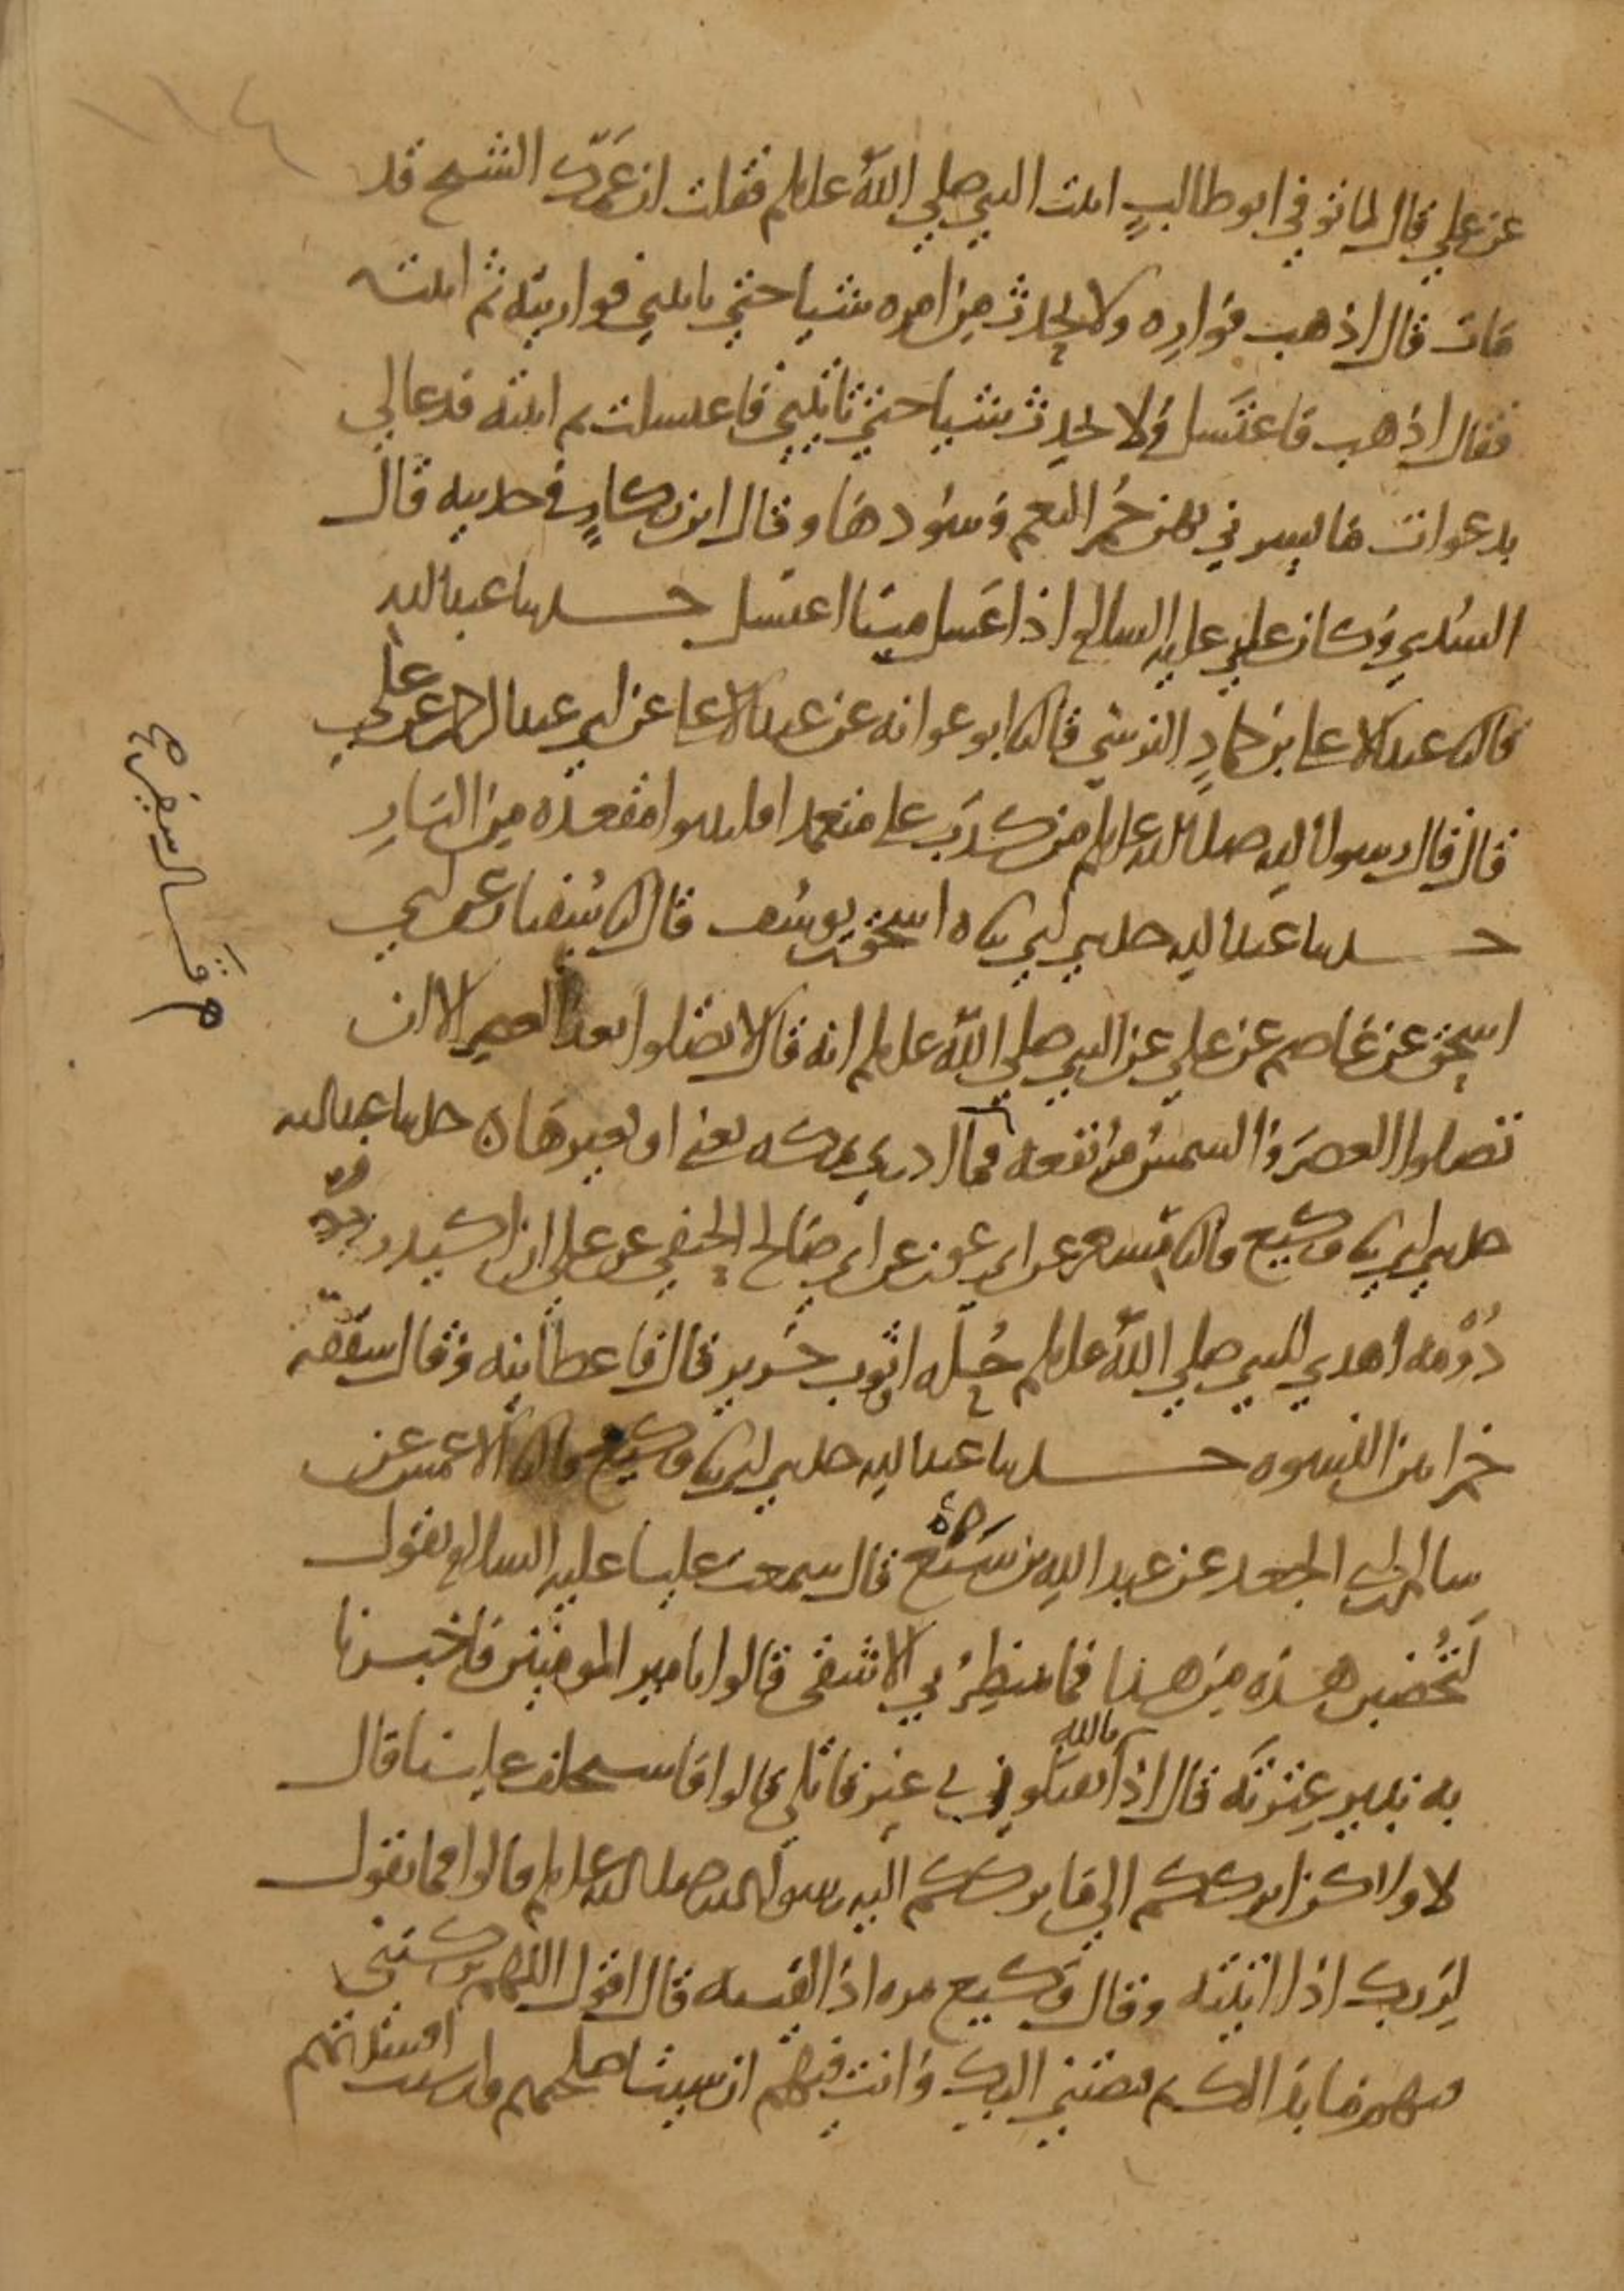 ١١٤
عن علي قال لما توفي ابو طالب اتيت النبي صلي الله علىلم فقلت ان عمك الشيخ قد
مات قال اذهب فواره ولا تحدث من امره شيا حتي تاتيني فواريته ثم اتيته
فقال اذهب فاغتسل ولا تحدث شيا حتي تاتيني فاغتسلت ثم اتيته فدعا لي
بدعوات ما يسرني بهن حمر النعم وسودها وقال ابن بكار في حديثه قال
السدي وكان علي عليه السلام اذا غسل ميتا اغتسل حدثنا عبد الله
قال ثنا عبد الاعلا بن حماد النرسي قال ثنا ابو عوانه عن عبد الاعلا عن ابي عبد الرحمن عن علي
قال قال رسول الله صلى الله علىلم من كذب علي متعمدا فليتبوا مقعده من النار
حدثنا عبد الله حدثني ابي ثنا اسحق بن يوسف قال انا سفيان عن ابي
اسحق عن عاصم عن علي عن النبي صلي الله علىلم انه قال لا تصلوا بعد العصر الا ان
تصلوا العصر والشمس مرتفعه فما ادري بمكه يعني او بغيرها حدثنا عبد الله
حدثني ابي ثنا وكيع قال ثنا مسعر عن ابي عون عن ابي صالح الحنفي عن علي ان اكيدر
دومه اهدي للنبي صلي الله علىلم حله او ثوب حرير قال فاعطانيه وقال شققه
خمرا بين النسوه حدثنا عبد الله حدثني ابي ثنا وكيع قال ثنا الاعمش عن
سالم بن ابي الجعد عن عبد الله بن سبع قال سمعت عليا عليه السلام يقول
لتخضبن هذه من هذا فما ينتظر بي الاشقى قالوا يا امير المومنين فاخبرنا
به نبير عترته قال اذا تالله تقتلون بي غير قاتلي قالوا فاستخلف علينا قال
لا ولكن اترككم الي ما ترككم اليه رسول الله صلى الله علىلم قالوا فما تقول
لربك اذا اتيته وقال وكيع مره اذا لقيته قال اقول اللهم تركتني
فيهم ما بدا لك ثم قبضتني اليك وانت فيهم ان شيت اصلحتهم وان شيت افسدتهم